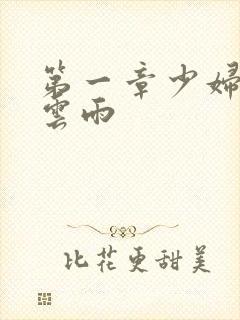 第一章少婦
雲雨
比花更甜美